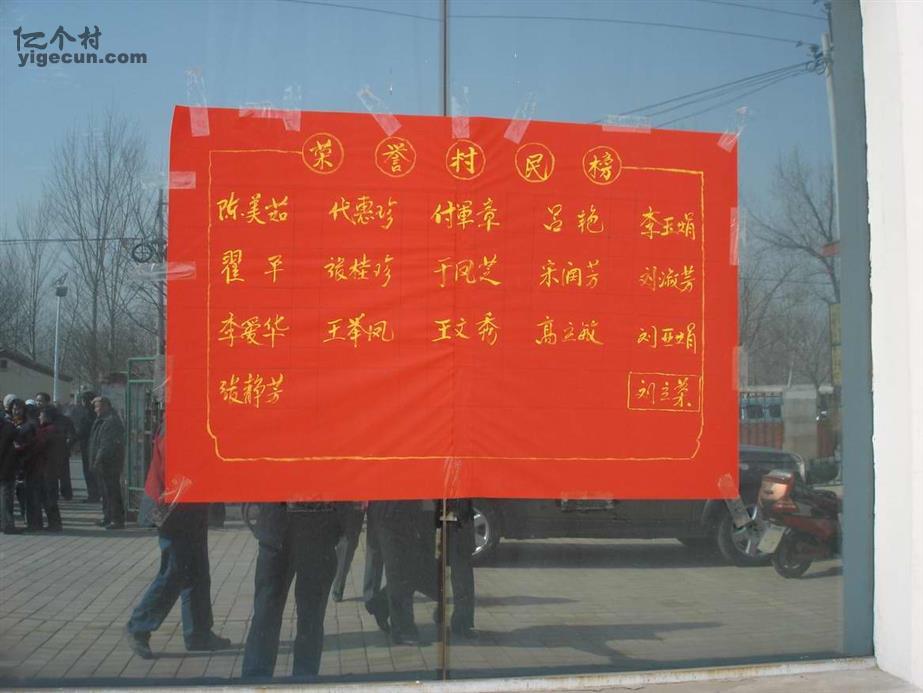 亿个村
yigecun.com
荣誉村民榜
陈美茹 代惠珍 付军章 吕艳 李玉娟
翟平 张桂珍 于凤芝 宋润芳 刘淑芳
李爱华 王举凤 王文秀 高立敏 刘亚娟
张静芳 刘立荣